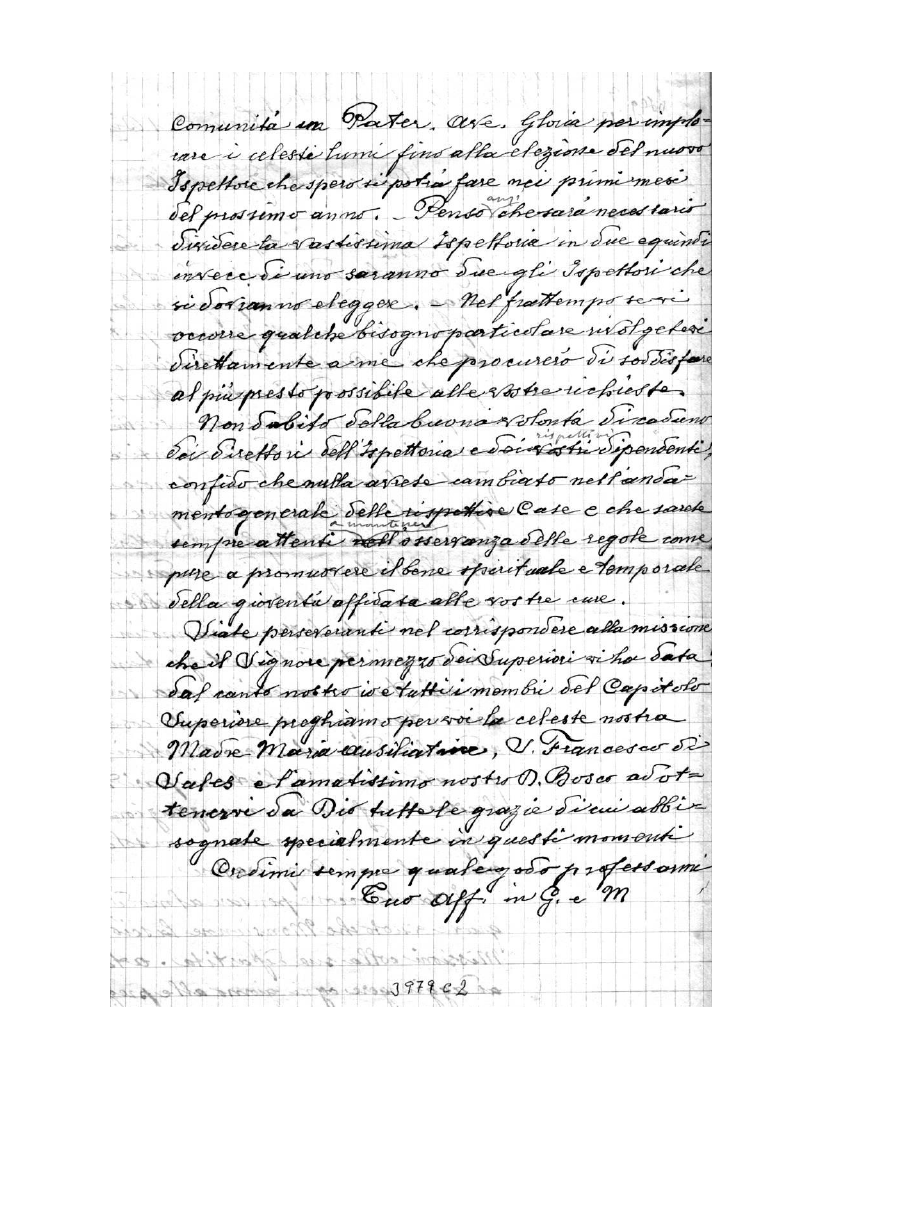 Comunità un Pater. Ave. Gloria per implo=
rare i celesti lumi fino alla elezione del nuovo
Ispettore che spero si potrà fare nei primi mesi
del prossimo anno. – Penso anzi che sarà necessario
dividere la vastissima Ispettoria in due e quindi
invece di uno saranno due gli Ispettori che
si dovranno eleggere. – Nel frattempo se vi
occorre qualche bisogno particolare rivolgetevi
direttamente a me che procurerò di soddisfare
al più presto possibile alle vostre richieste
Non dubito della buona volontà di caduno
dei direttori dell'Ispettoria e dei vostri rispettivi dipendenti,
confido che nulla avrete cambiato nell'anda=
mento generale delle rispettive Case e che sarete
sempre attenti nell' a mantenere osservanza delle regole come
pure a promuovere il bene spirituale e temporale
della gioventù affidata alle vostre cure.
Siate perseveranti nel corrispondere alla missione
che il Signore per mezzo dei Superiori vi ha data
dal canto nostro io e tutti i membri del Capitolo
Superiore preghiamo per voi la celeste nostra
Madre Maria Ausiliatrice, S. Francesco di
Sales e l'amatissimo nostro D. Bosco ad ot=
tenervi da Dio tutte le grazie di cui abbi=
sognate specialmente in questi momenti
Credimi sempre quale godo professarmi
Tuo Aff. in G. e M
3979 C 2